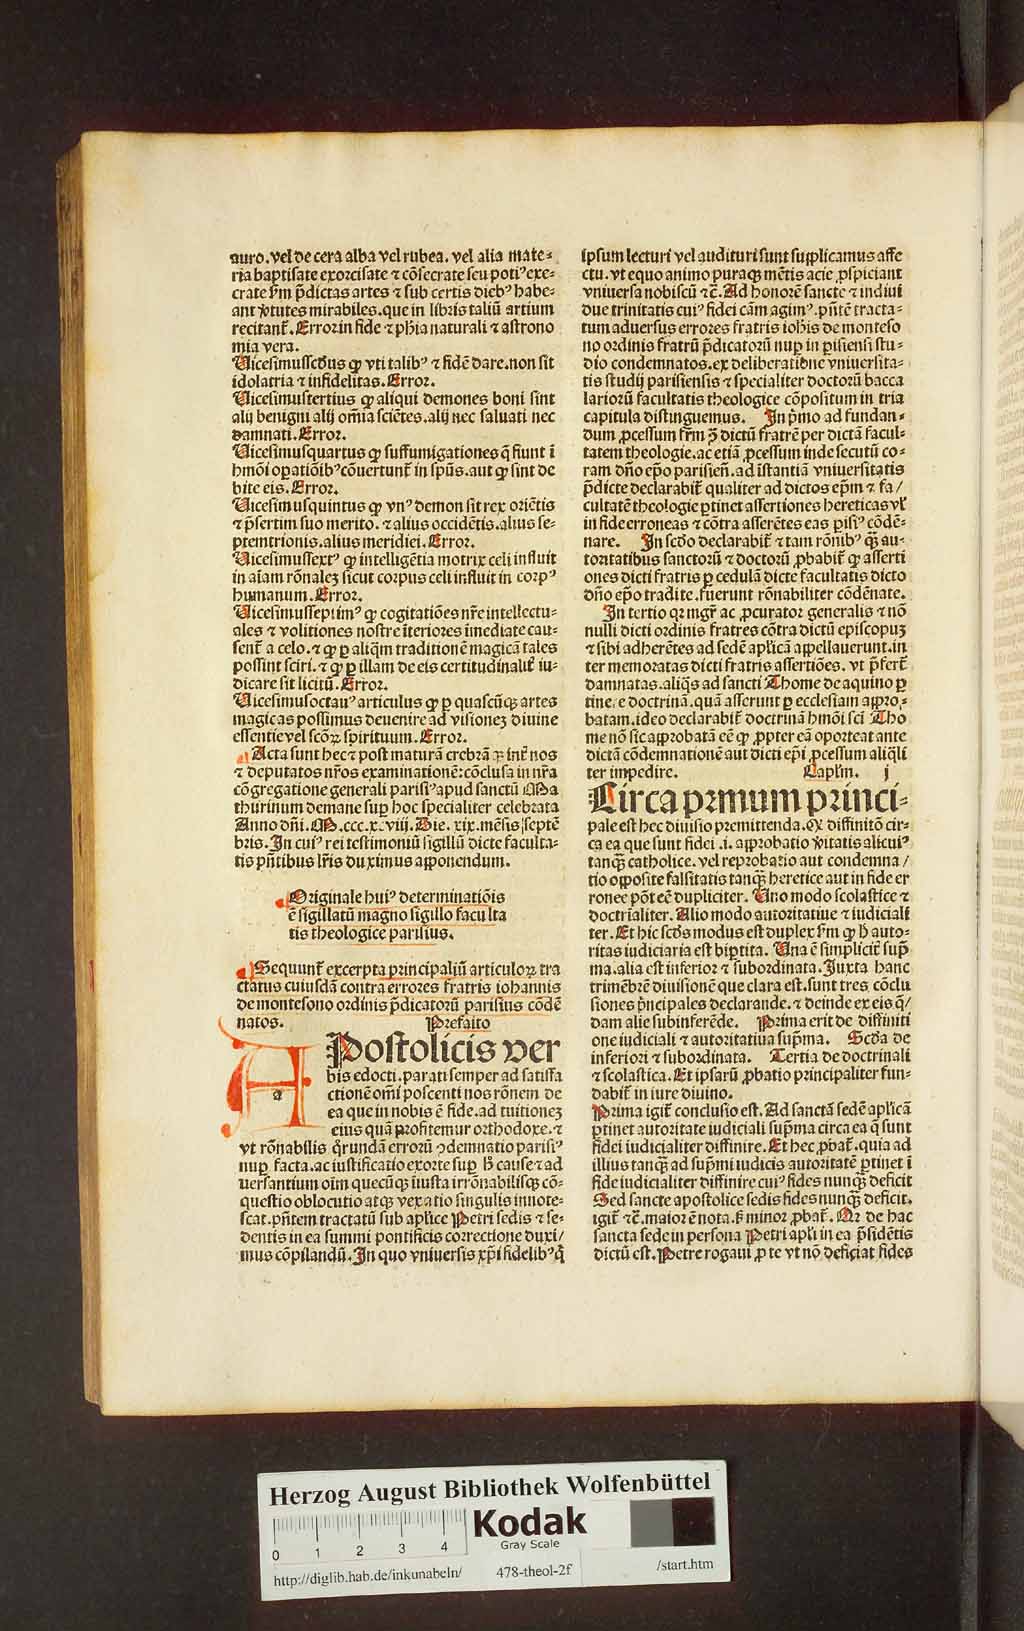 auro. vel de cera alba vel rubea. vel alia mate⸗
ria baptisate exorcisate ⁊ cōsecrate seu potiꝰ exe⸗
crate ẜm p̄dictas artes ⁊ sub certis diebꝰ habe⸗
ant v̓tutes mirabiles. que in libris taliū artium
recitant̄. Error in fide ⁊ ph̄ia naturali ⁊ astrono
mia vera.
Uicesimussecūdus ꝙ vti talibꝰ ⁊ fidē dare. non sit
idolatria ⁊ infidelitas. Error.
Uicesimustertius ꝙ aliqui demones boni sint
alij benigni alij om̄ia sciētes. alij nec saluati nec
damnati. Error.
Uicesimusquartus ꝙ suffumigationes q̄ fiunt ī
hmōi oꝑatiōibꝰ cōuertunt̄ in spūs. aut ꝙ sint de
bite eis. Error.
Uicesimusquintus ꝙ vnꝰ demon sit rex oriētis
⁊ p̄sertim suo merito. ⁊ alius occidētis. alius se⸗
ptemtrionis. alius meridiei. Error.
Uicesimussextꝰ ꝙ intelligētia motrix celi influit
in aīam rōnalez sicut corpus celi influit in corpꝰ
humanum. Error.
Uicesimusseptimꝰ ꝙ cogitatiōes nr̄e intellectu⸗
ales ⁊ volitiones nostre īteriores īmediate cau⸗
sent̄ a celo. ⁊ ꝙ ꝑ aliqm̄ traditionē magicā tales
possint sciri. ⁊ ꝙ ꝑ illam de eis certitudinalit̄ iu⸗
dicare sit licitū. Error.
Uicesimusoctauꝰ articulus ꝙ ꝑ quascūqꝫ artes
magicas possimus deuenire ad visionez diuine
essentie vel scōꝝ spirituum. Error.
Acta sunt hec ⁊ post maturā crebrā qꝫ int̄ nos
⁊ deputatos nr̄os examinationē: cōclusa in nr̄a
cōgregatione generali parisiꝰ apud sanctū Ma
thurinum demane suꝑ hoc specialiter celebrata
Anno dn̄i. M. ccc. xcviij. Die. xix. mēsis septē
bris. In cuiꝰ rei testimoniū sigillū dicte faculta⸗
tis pn̄tibus lr̄is duximus apponendum.
Originale huiꝰ determinatiōis
ē sigillatū magno sigillo faculta
tis theologice parisius.
Sequunt̄ excerpta principaliū articuloꝝ tra
ctatus cuiusdā contra errores fratris iohannis
de montesono ordinis p̄dicatorū parisius cōdē
natos. Prefaito
A
a
Postolicis ver
bis edocti. parati semper ad satisfa
ctionē om̄i poscenti nos rōnem de
ea que in nobis ē fide. ad tuitionez
eius quā profitemur orthodoxe. ⁊
vt rōnabilis q̊rundā errorū ꝯdemnatio parisiꝰ
nuꝑ facta. ac iustificatio exorte suꝑ h̄ cause ⁊ ad
uersantium oīm quecūqꝫ iusta irrōnabilisqꝫ cō⸗
questio oblocutio atqꝫ vexatio singulis innote⸗
scat. pn̄tem tractatū sub apl̄ice Petri sedis ⁊ se⸗
dentis in ea summi pontificis correctione duxi/
mus cōpilandū. In quo vniuersis xp̄i fidelibꝰ q̄
ipsum lecturi vel audituri sunt supplicamus affe
ctu. vt equo animo puraqꝫ mētis acie ꝓspiciant
vniuersa nobiscū ⁊c̄. Ad honorē sancte ⁊ indiui
due trinitatis cuiꝰ fidei cām agimꝰ. pn̄tē tracta⸗
tum aduersus errores fratris ioh̄is de monteso
no ordinis fratrū p̄dicatorū nuꝑ in ꝑisiensi stu⸗
dio condemnatos. ex deliberatione vniuersita⸗
tis studij parisiensis ⁊ specialiter doctorū bacca
lariorū facultatis theologice cōpositum in tria
capitula distinguemus. In p̄mo ad fundan⸗
dum ꝓcessum fr̄m ꝯ̄ dictū fratrē per dictā facul⸗
tatem theologie. ac etiā ꝓcessum inde secutū co⸗
ram dn̄o ep̄o parisien̄. ad īstantiā vniuersitatis
p̄dicte declarabit̄ qualiter ad dictos ep̄m ⁊ fa/
cultatē theologie ꝑtinet assertiones hereticas vl̓
in fide erroneas ⁊ cōtra asserētes eas ꝑisiꝰ cōdē⸗
nare. In scd̄o declarabit̄ ⁊ tam rōnibꝰ qꝫ̄ au⸗
toritatibus sanctorū ⁊ doctorū ꝓbabit̄ ꝙ asserti
ones dicti fratris ꝑ cedulā dicte facultatis dicto
dn̄o ep̄o tradite. fuerunt rōnabiliter cōdēnate.
In tertio qꝛ mgr̄ ac ꝓcurator generalis ⁊ nō
nulli dicti ordinis fratres cōtra dictū episcopuz
⁊ sibi adherētes ad sedē apl̄icā appellauerunt. in
ter memoratas dicti fratris assertiōes. vt p̄fert̄
damnatas. aliq̄s ad sancti Thome de aquino ꝑ
tinere doctrinā. quā asserunt ꝑ ecclesiam appro⸗
batam. ideo declarabit̄ doctrinā hmōi scī Tho
me nō sic approbatā eē ꝙ ꝓpter eā oporteat ante
dictā cōdemnationē aut dicti ep̄i ꝓcessum aliqͣli
ter impedire. Capl̄m. j
Circa prmum princi⸗
pale est hec diuisio premittenda. ꝙ diffinitō cir⸗
ca ea que sunt fidei .i. approbatio v̓itatis alicuiꝰ
tanqꝫ̄ catholice. vel reprobatio aut condemna/
tio opposite falsitatis tanqꝫ̄ heretice aut in fide er
ronee pōt eē dupliciter. Uno modo scolastice ⁊
doctrialiter. Alio modo autoritatiue ⁊ iudiciali
ter. Et hic scd̄s modus est duplex ẜm ꝙ h̄ auto⸗
ritas iudiciaria est biꝑtita. Una ē simplicit̄ sup̄
ma. alia est inferior ⁊ subordinata. Juxta hanc
trimēbrē diuisionē que clara est. sunt tres cōclu
siones p̄ncipales declarande. ⁊ deinde ex eis q̄/
dam alie subinferēde. Prima erit de diffiniti
one iudiciali ⁊ autoritatiua sup̄ma. Scd̄a de
inferiori ⁊ subordinata. Tertia de doctrinali
⁊ scolastica. Et ipsarū ꝓbatio principaliter fun⸗
dabit̄ in iure diuino.
Prima igit̄ conclusio est. Ad sanctā sedē apl̄icā
ꝑtinet autoritate iudiciali sup̄ma circa ea q̄ sunt
fidei iudicialiter diffinire. Et hec ꝓbat̄. quia ad
illius tanqꝫ̄ ad sup̄mi iudicis autoritatē ꝑtinet ī
fide iudicialiter diffinire cuiꝰ fides nunqꝫ̄ deficit
Sed sancte apostolice sedis fides nunqꝫ̄ deficit.
igit̄ ⁊c̄. maior ē nota. ẜ minor ꝓbat̄. Nā de hac
sancta sede in persona Petri apl̄i in ea p̄sidētis
dictū est. Petre rogaui ꝓ te vt nō deficiat fides
Herzog August Bibliothek Wolfenbüttel
0 1 2 3 4
Kodak
Gray Scale
http://diglib.hab.de/inkunabeln/ 478-theol-2f /start.htm